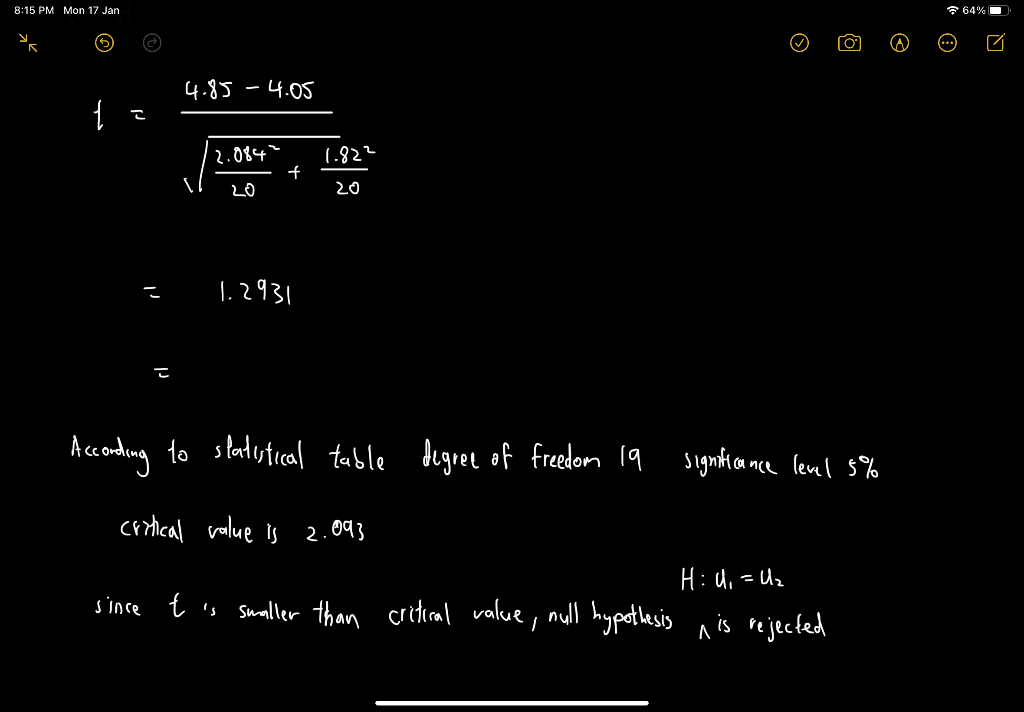 8:15 PM Mon 17 Jan 64%
t = 4.85 - 4.05
√ 2.084² / 20 + 1.82² / 20
= 1.2931
=
According to statistical table degree of freedom 19 significance level 5%
critical value is 2.093
H: u₁ = u₂
since t is smaller than critical value, null hypothesis ^ is rejected